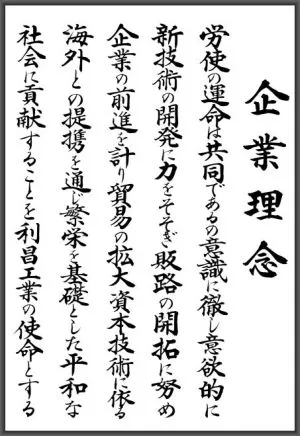 企業理念
労使の運命は共同であるの意識に徹し意欲的に
新技術の開発に力をそそぎ販路の開拓に努め
企業の前進を計り貿易の拡大資本技術に依る
海外との提携を通じ繁栄を基礎とした平和な
社会に貢献することを利昌工業の使命とする